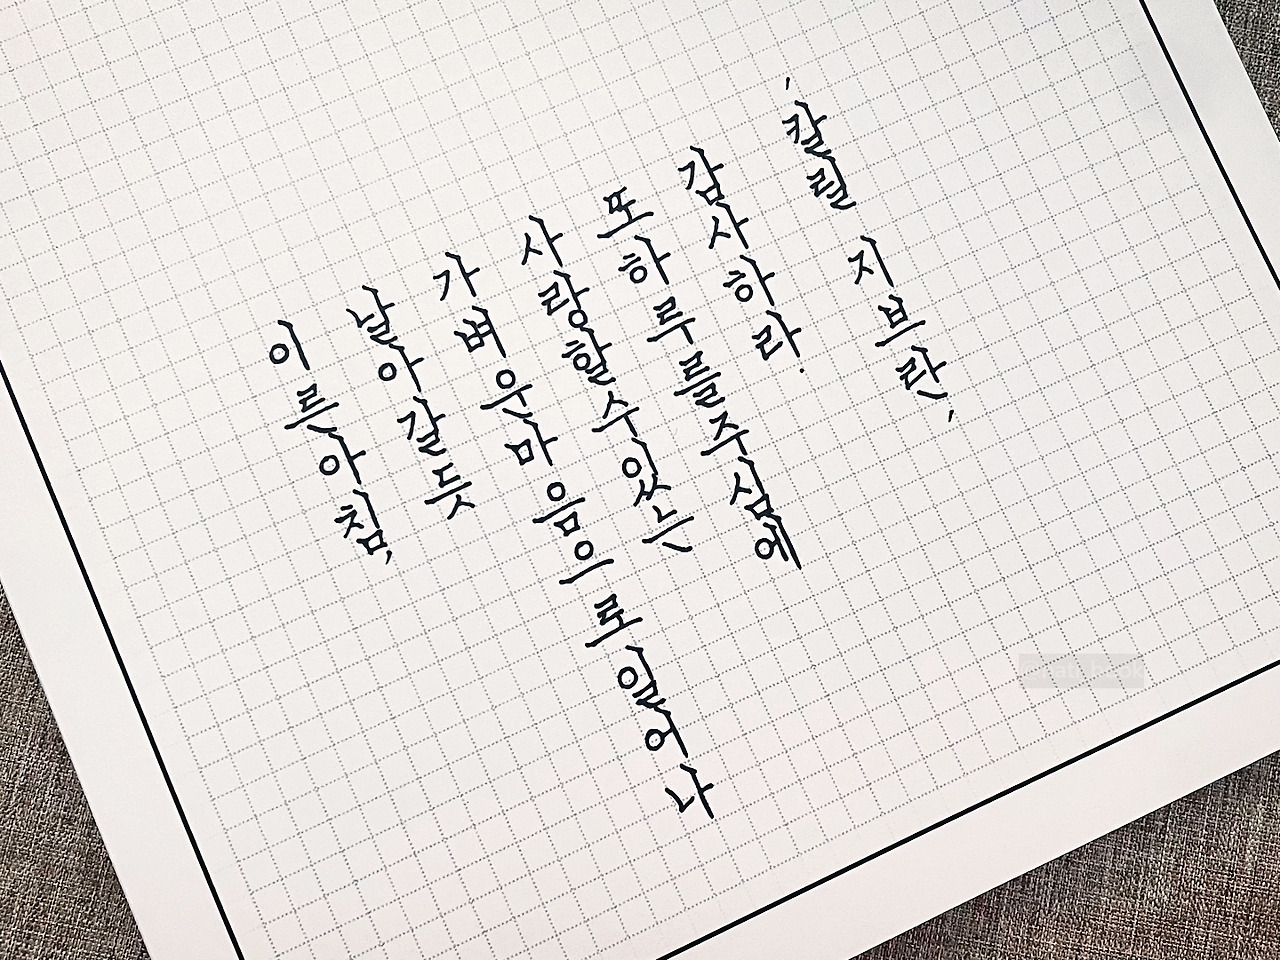 이른아침,
날아갈듯
가벼운마음으로일어나
사랑할수있는
또하루를주심에
감사하라.
'칼릴 지브란'